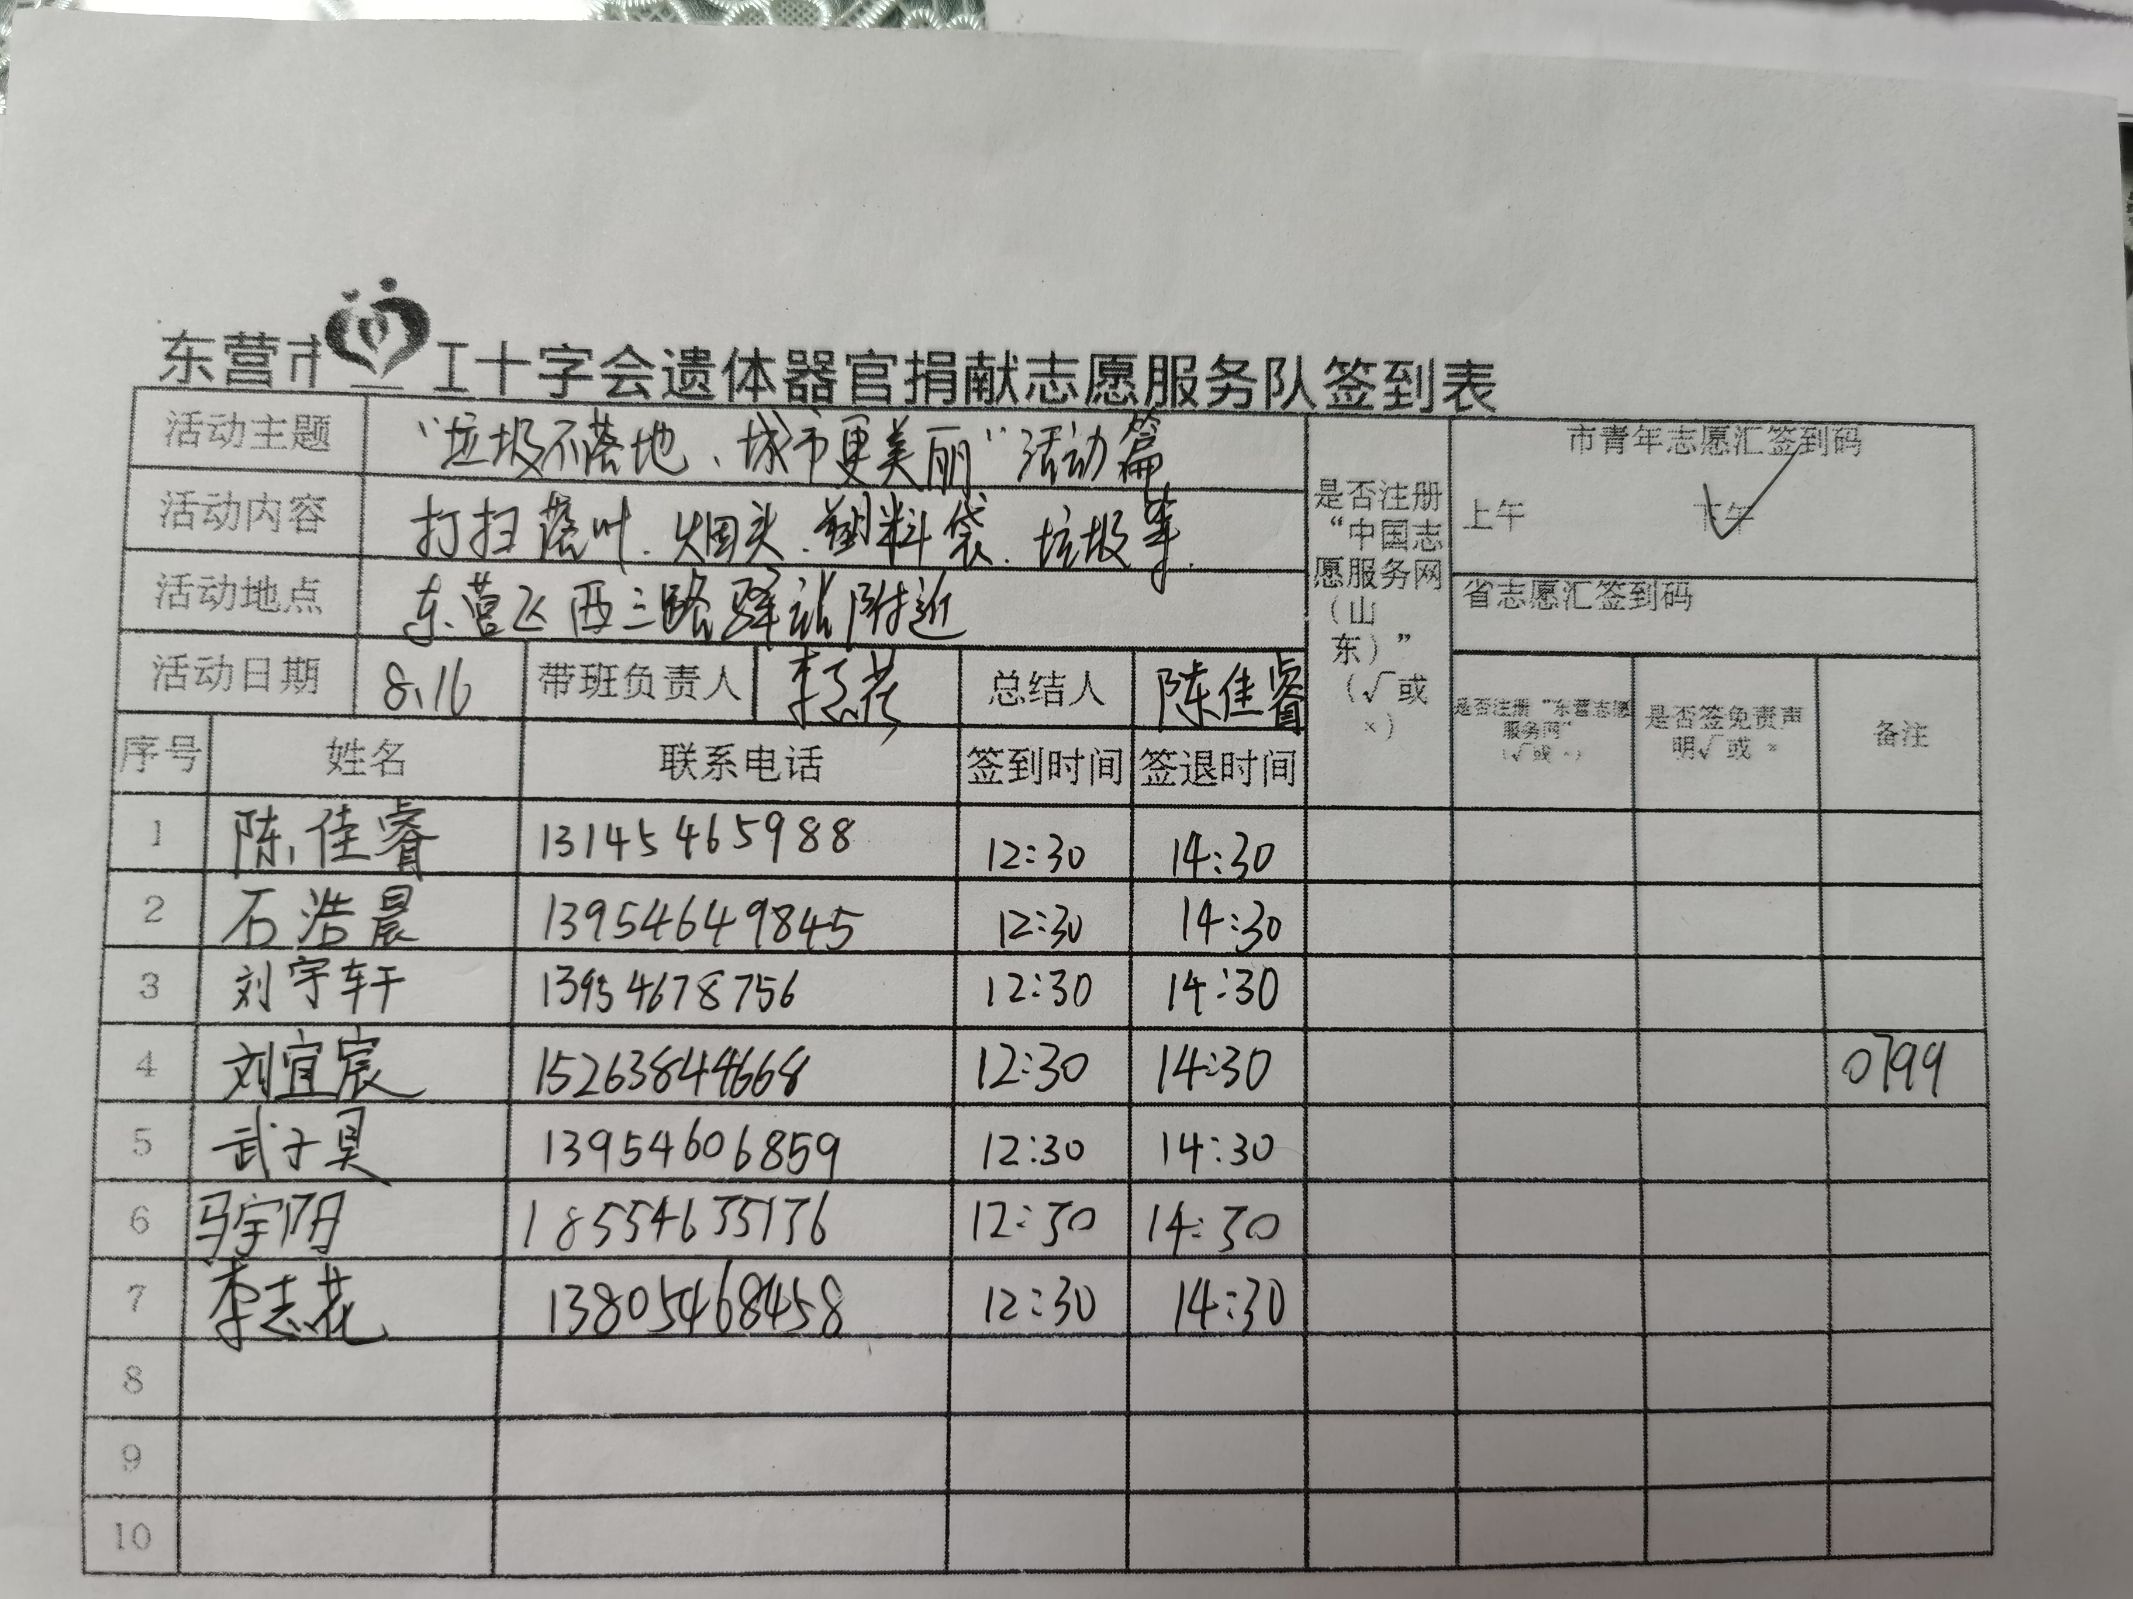 东营市红十字会遗体器官捐献志愿服务队签到表
活动主题 “垃圾不落地、城市更美丽”活动篇
活动内容 打扫落叶、烟头、塑料袋、垃圾等.
活动地点 东营区西三路驿站附近
活动日期 8.16 带班负责人 李志花 总结人 陈佳睿
是否注册
“中国志
愿服务网
（山
东）”
（√或
×）
市青年志愿汇签到码
上午 下午 √
省志愿汇签到码
是否注册“东营志愿
服务网”
（√或×）
是否签免责声
明√或×
备注
序号 姓名 联系电话 签到时间 签退时间
1 陈佳睿 13145465988 12:30 14:30
2 石浩晨 13954649845 12:30 14:30
3 刘宇轩 13954678756 12:30 14:30
4 刘宜宸 15263844668 12:30 14:30 0799
5 武子昊 13954606859 12:30 14:30
6 马宇阳 18554635136 12:30 14:30
7 李志花 13805468458 12:30 14:30
8
9
10